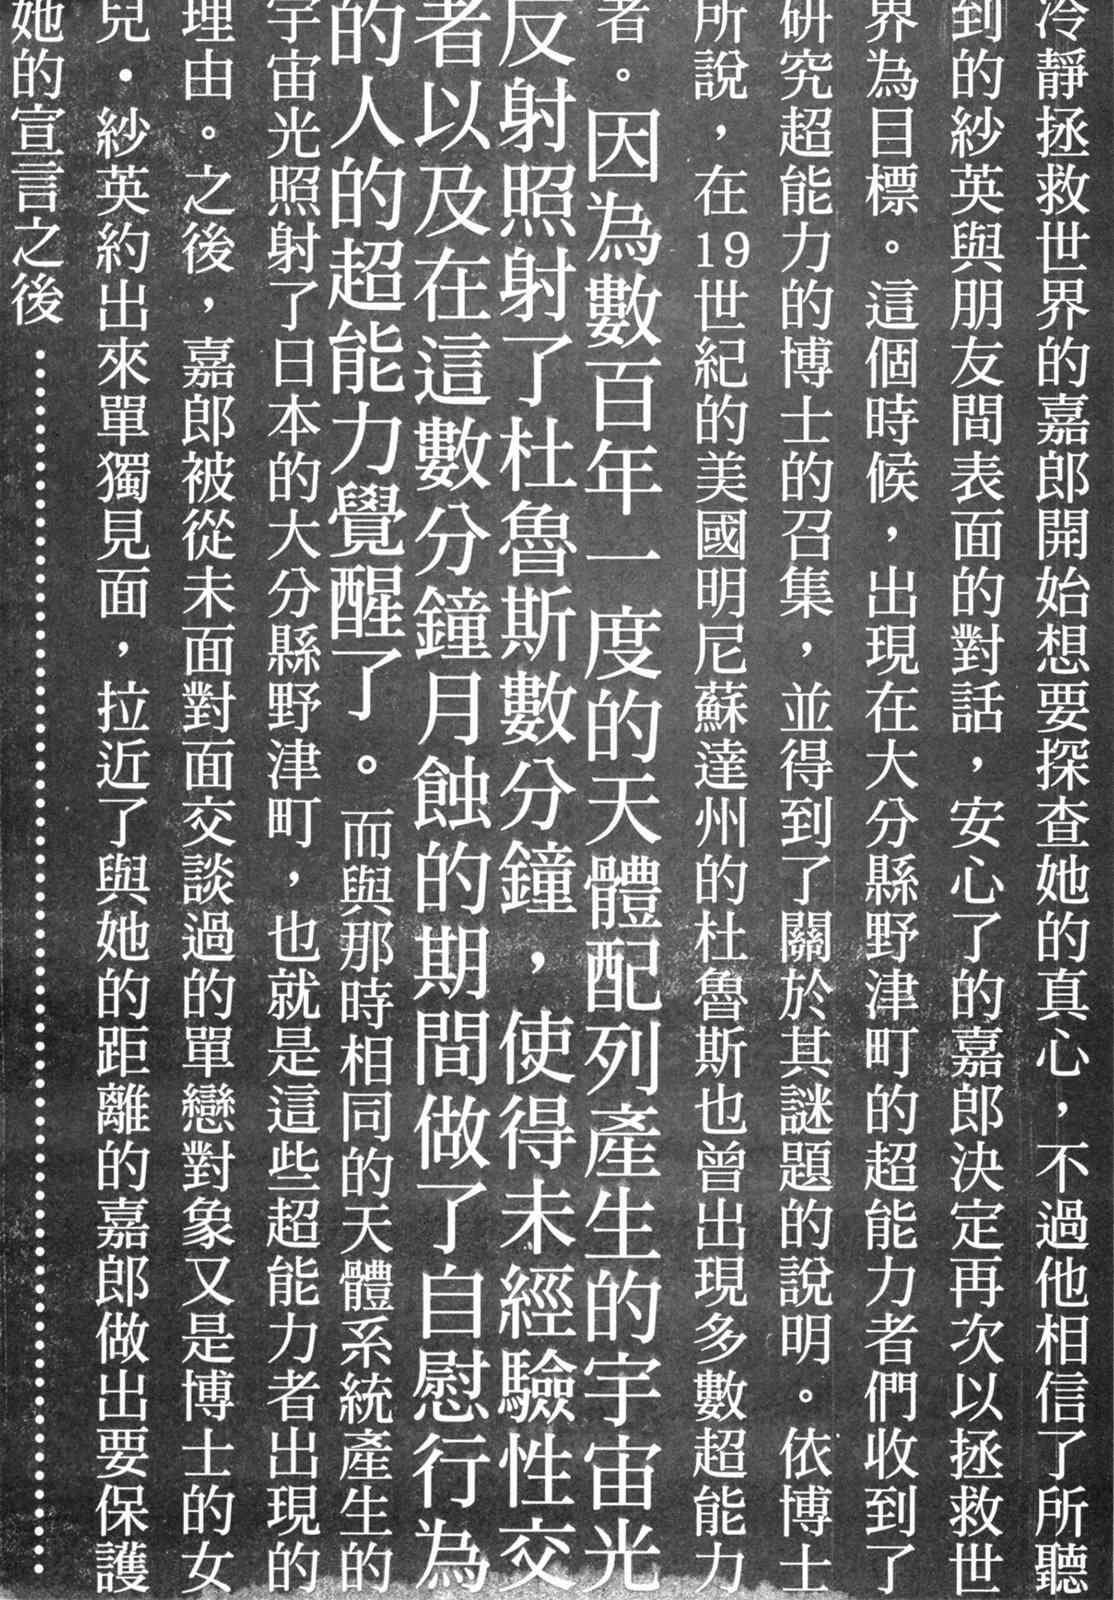 冷靜拯救世界的嘉郎開始想要探查她的真心，不過他相信了所聽
到的紗英與朋友間表面的對話，安心了的嘉郎決定再次以拯救世
界為目標。這個時候，出現在大分縣野津町的超能力者們收到了
研究超能力的博士的召集，並得到了關於其謎題的說明。依博士
所說，在19世紀的美國明尼蘇達州的杜魯斯也曾出現多數超能力
者。因為數百年一度的天體配列產生的宇宙光
反射照射了杜魯斯數分鐘，使得未經驗性交
者以及在這數分鐘月蝕的期間做了自慰行為
的人的超能力覺醒了。而與那時相同的天體系統產生的
宇宙光照射了日本的大分縣野津町，也就是這些超能力者出現的
理由。之後，嘉郎被從未面對面交談過的單戀對象又是博士的女
兒・紗英約出來單獨見面，拉近了與她的距離的嘉郎做出要保護
她的宣言之後……………………………………